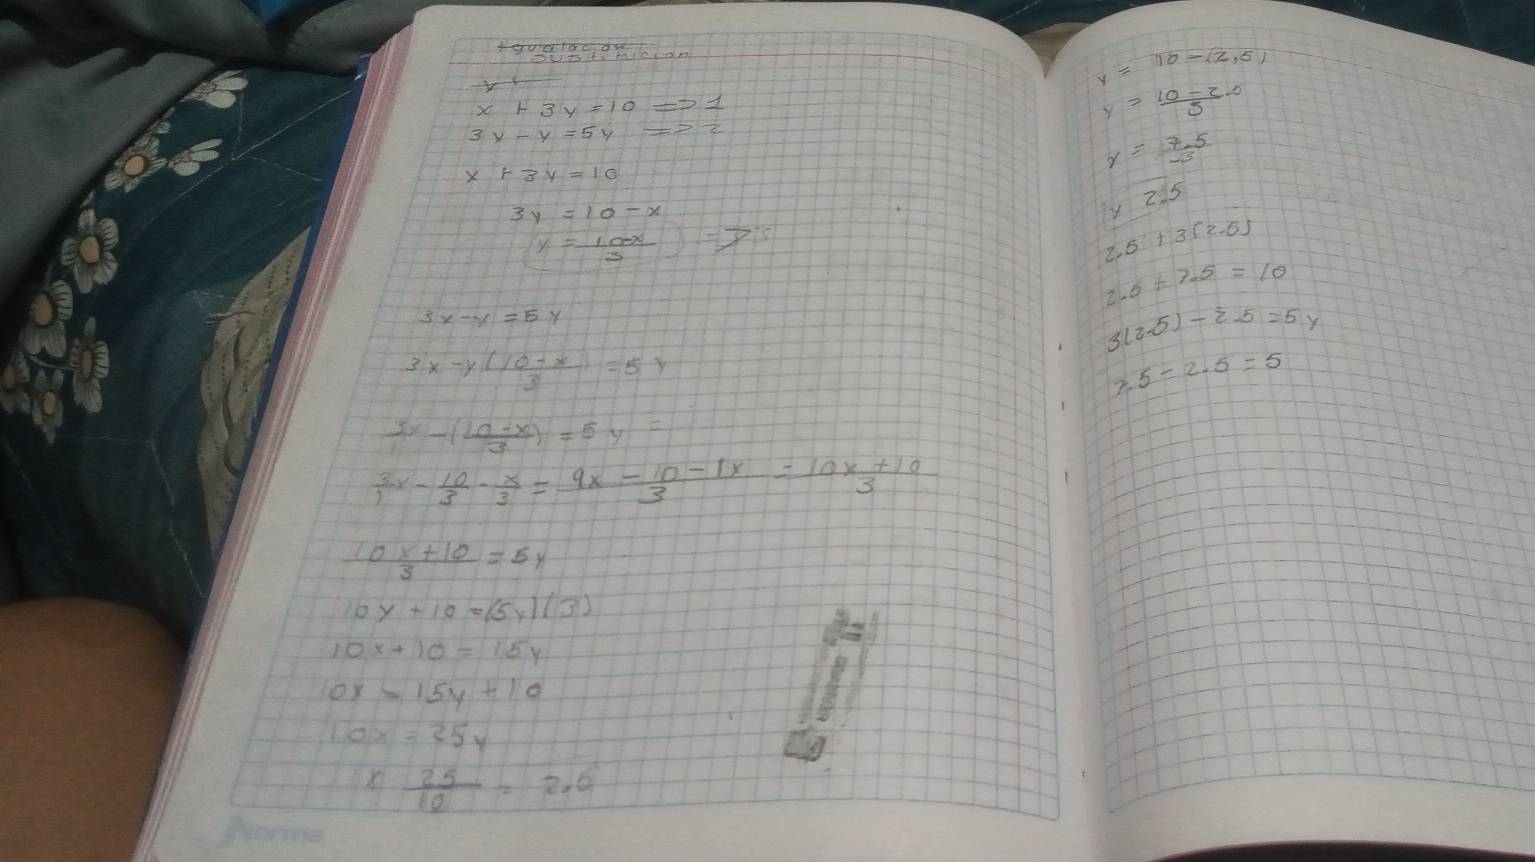 Igualacion
sustitucion
x + 3y = 10 => 1
3y - y = 5y => 2
x + 3y = 10
3y = 10 - x
y = 10-x / 3 =>
3x - y = 5y
3x - y (10 - x / 3) = 5y
3x - (10 - x / 3) = 5y =
3/1 x - 10/3 - x/3 = 9x - 10 - 1x / 3 = 10x + 10 / 3
10x + 10 / 3 = 5y
10y + 10 = (5y)(3)
10x + 10 = 15y
10x = 15y + 10
10x = 25y
x 25/10 = 2.5
Norma
BORRADOR
y = 10 - (2,5)
y = 10 - 2.5 / 3
y = 7.5 / 3
y 2.5
2.5 + 3(2.5)
2.5 + 7.5 = 10
3(2.5) - 2.5 = 5y
7.5 - 2.5 = 5